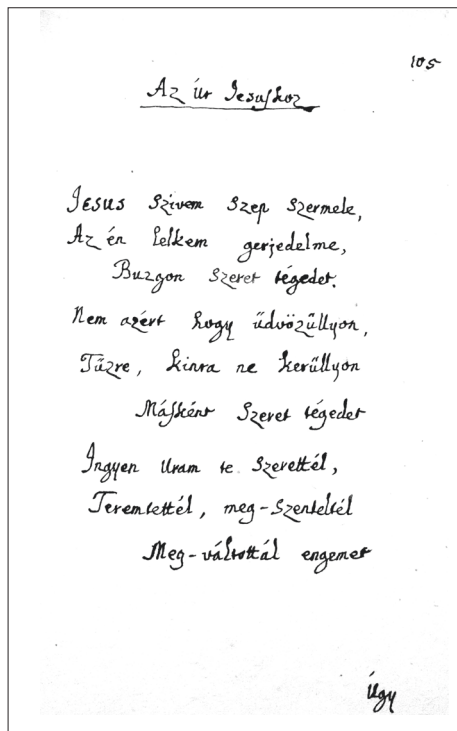 105
Az úr Jesushoz
Jesus Szivem Szep Szermele,
Az én Lelkem gerjedelme,
Buzgon Szeret tégedet.
Nem azért hogy űdvözűllyon,
Tűzre, kinra ne kerűllyon
Másként Szeret tégedet
Ingyen Uram te Szerettél,
Teremtettél, meg-Szenteltél
Meg-váltottál engemet
Úgy